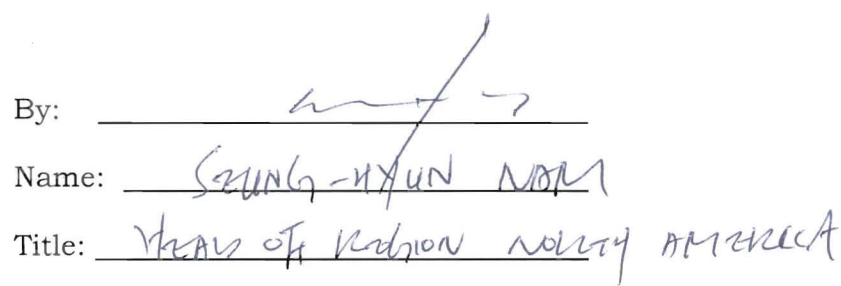 By:
Name: SEUNG-HYUN NAM
Title: HEAD OF REGION NORTH AMERICA